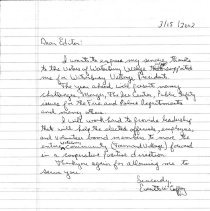 3/15/2002
Dear Editor:
I want to express my sincere thanks
to the voters of Waterbury Village that supported
me for Waterbury Village President.
The year ahead will present many
challenges, Merger, The Ice Center, Public Safety
issues for the Fire and Police Departments
and many others.
I will work hard to provide leadership
that will help the elected officials, employees,
and volunteer board members to move the
entire Community (Town and Village) forward
in a cooperative positive direction.
Thank you again for allowing me to
serve you.
Sincerely,